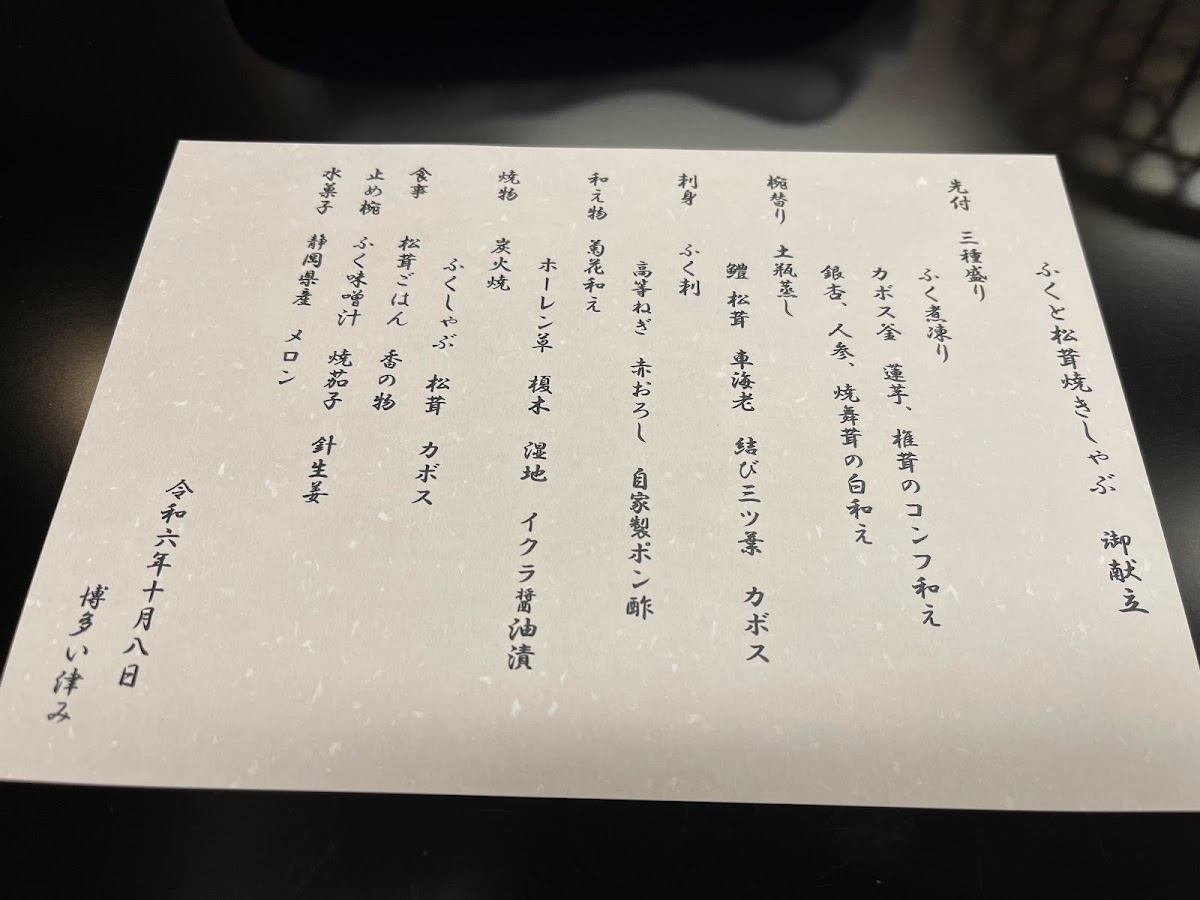 ふくと松茸焼きしゃぶ 御献立
先付 三種盛り
ふく煮凍り
カボス釜 蓮芋、椎茸のコンフ和え
銀杏、人参、焼舞茸の白和え
椀替り 土瓶蒸し
鱧 松茸 車海老 結び三ツ葉 カボス
刺身 ふく刺
高等ねぎ 赤おろし 自家製ポン酢
和え物 菊花和え
ホーレン草 榎木 湿地 イクラ醤油漬
焼物 炭火焼
ふくしゃぶ 松茸 カボス
食事 松茸ごはん 香の物
止め椀 ふく味噌汁 焼茄子 針生姜
水菓子 静岡県産 メロン
令和六年十月八日
博多い津み